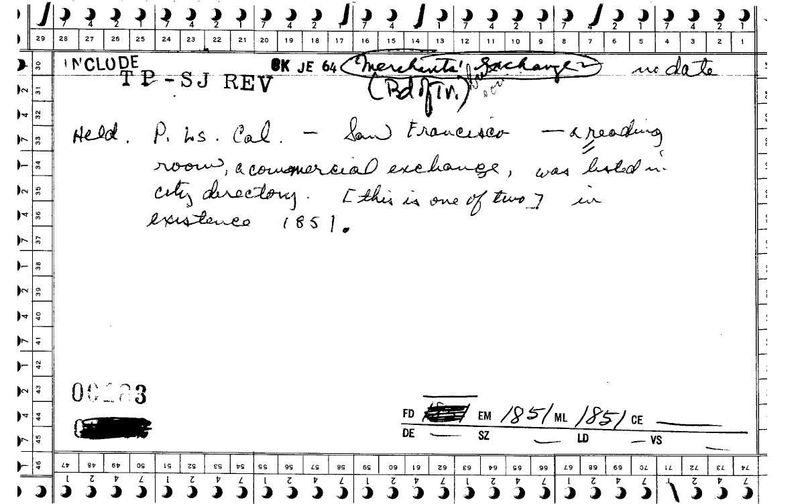 29 28 27 26 25 24 23 22 21 20 19 18 17 16 15 14 13 12 11 10 9 8 7 6 5 4 3 2 1
INCLUDE
TP-SJ REV OK JE 64 Merchants' Exchange no date
(Bd of Tr.)
Held. P. Ls. Cal. — San Francisco — a reading
room, a commercial exchange, was listed in
city directory. [this is one of two] in
existence 1851.
3
FD EM 1851 ML 1851 CE
DE SZ LD VS
30 31 32 33 34 35 36 37 38 39 40 41 42 43 44 45 46
47 48 49 50 51 52 53 54 55 56 57 58 59 60 61 62 63 64 65 66 67 68 69 70 71 72 73 74